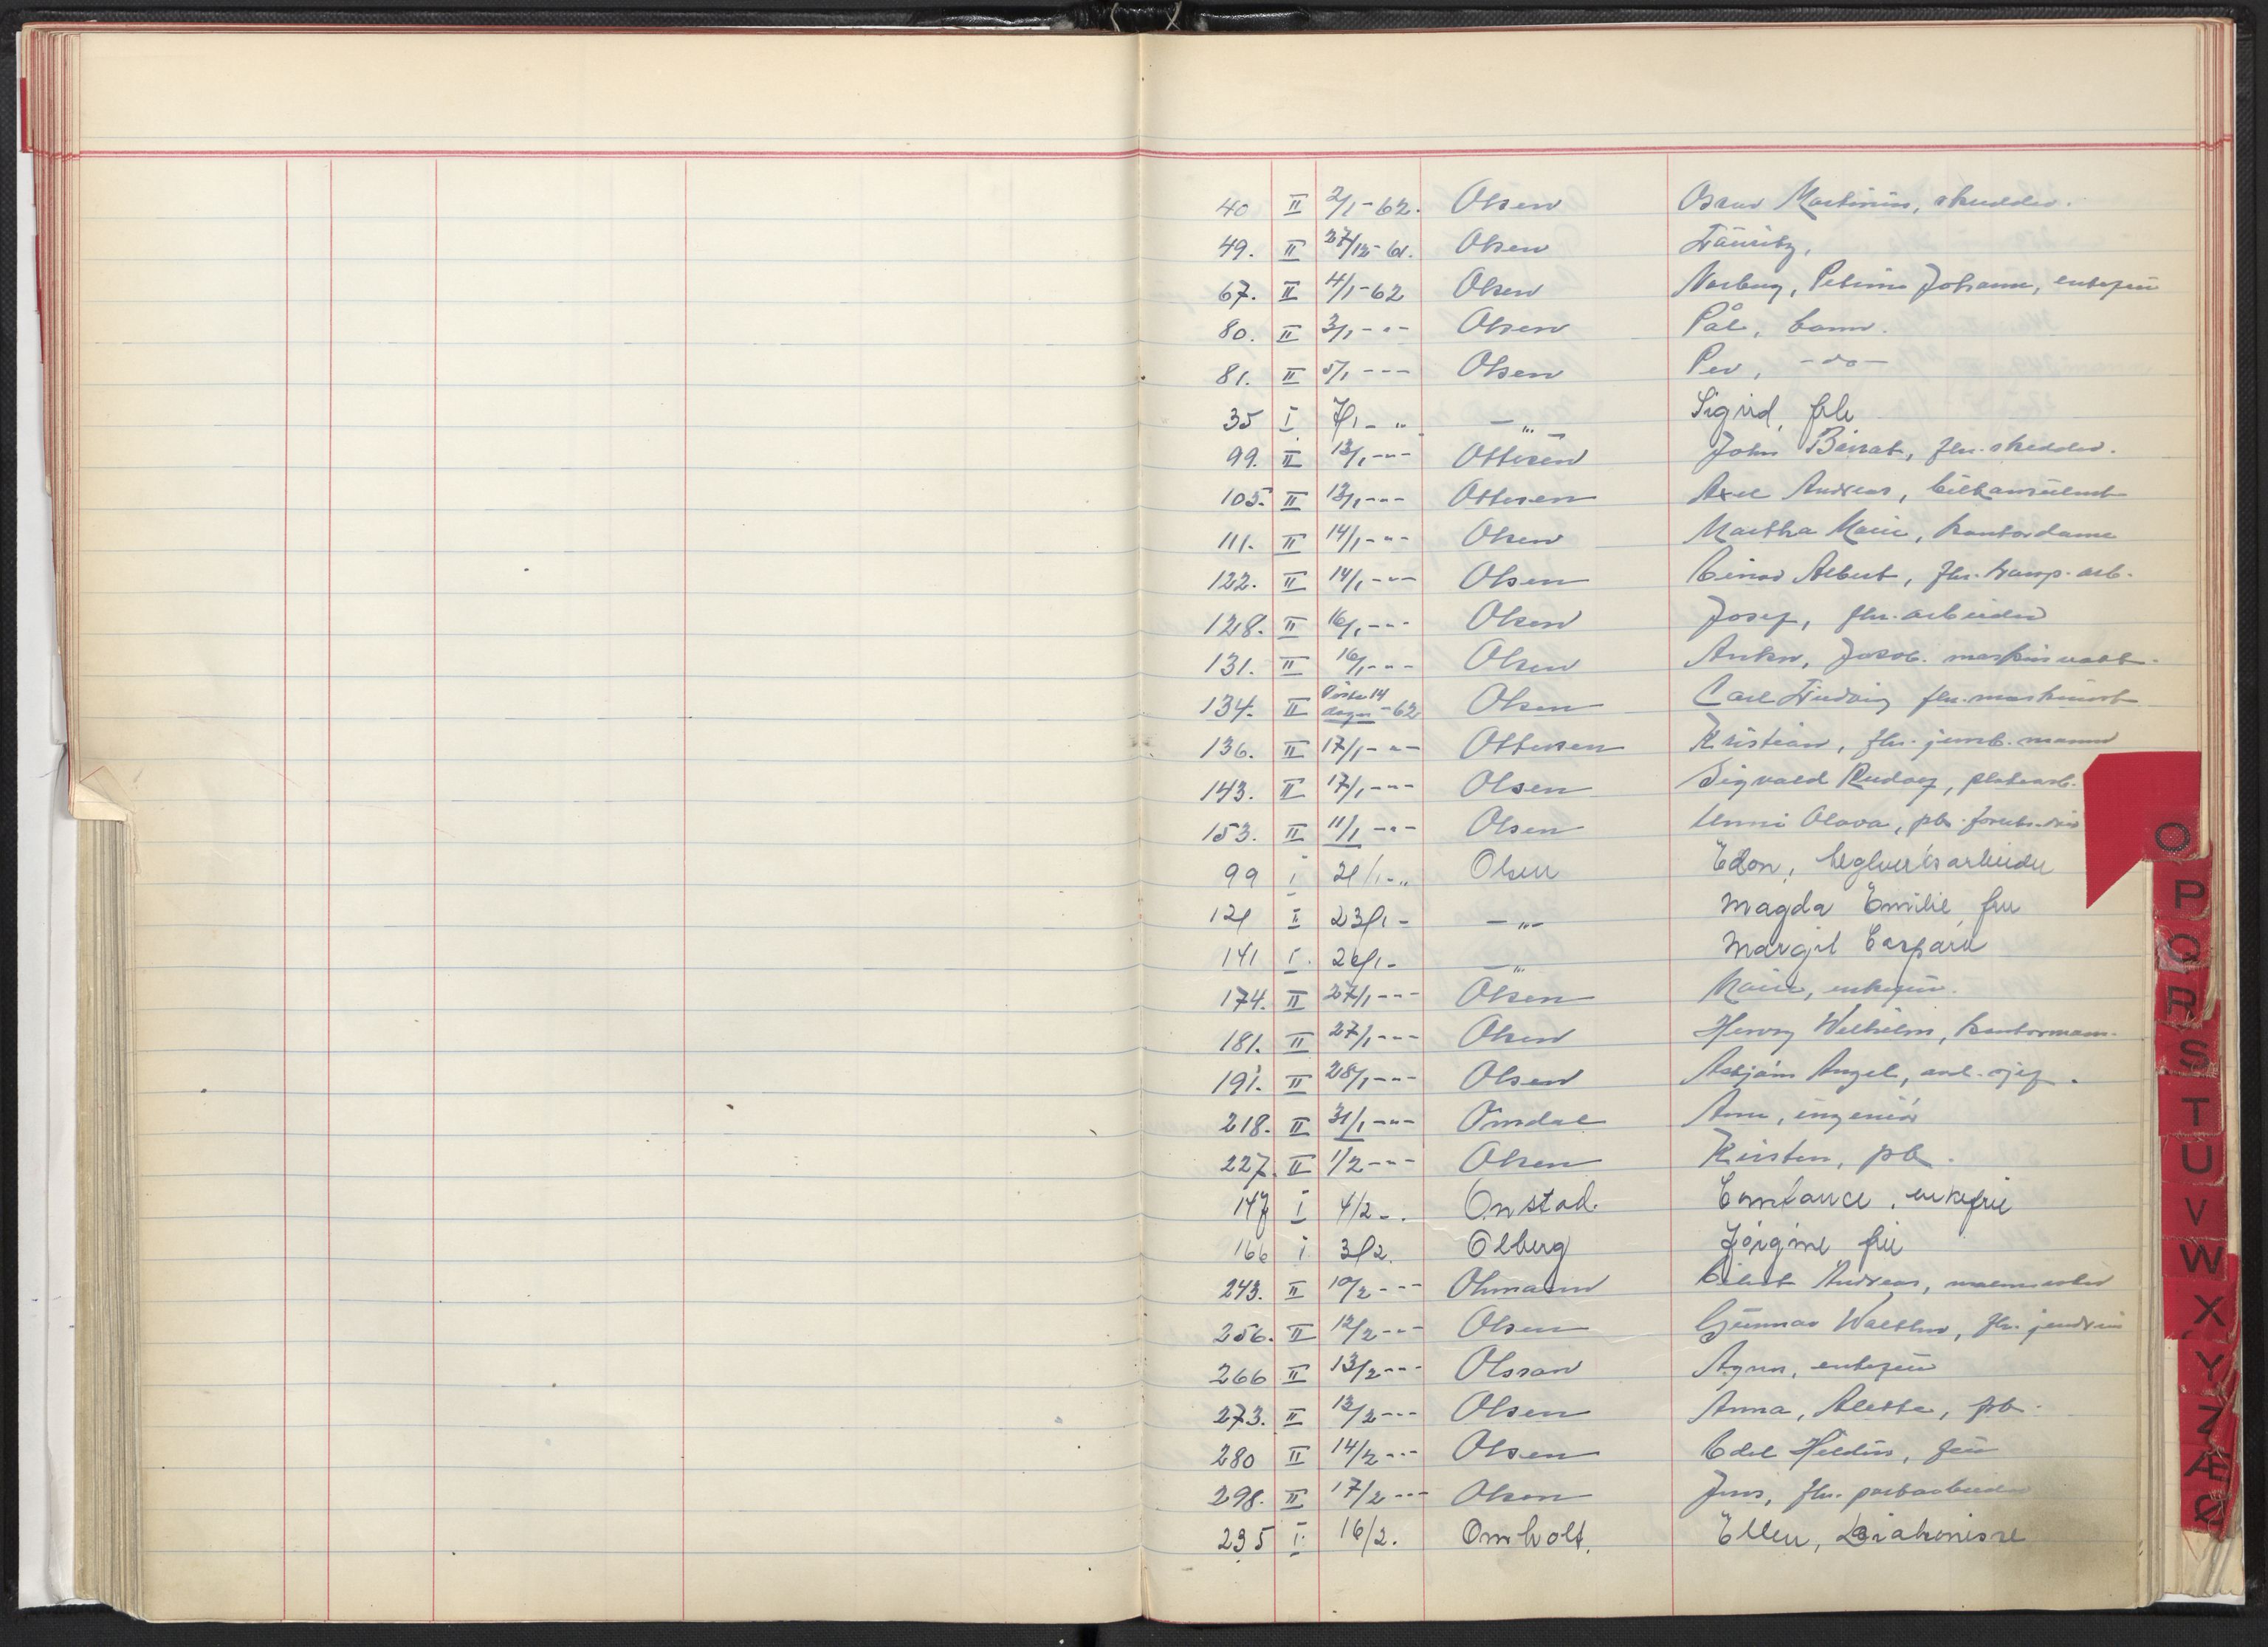 40 II 2/1-62. Olsen Oscar Martinius, skredder.
49. II 27/12-61. Olsen Lauritz,
67. II 4/1-62 Olsen Norberg, Petrine Johanne, enkefru
80. II 3/1 - " - Olsen Pål, barn.
81. II 5/1 - - - Olsen Per, - do -
35 I 7/1 - " - " - Sigrid, frk
99. II 13/1 - " - Ottesen John Birrat, fhv. skredder.
105. II 13/1 - " - Ottesen Axel Andreas,
111. II 14/1 - " - Olsen Martha Marie, kontordame
122. II 14/1 - " - Olsen Einar Albert, fhv. transp. arb.
128. II 16/1 - " - Olsen Josef, fhv. arbeider
131. II 16/1 - " - Olsen Anker, Jacob. maskinvakt.
134. II Påske 14 dager -62 Olsen Carl Ludvig fhv. maskinist
136. II 17/1 - " - Ottersen Kristian, fhv. jernb. mann
143. II 17/1 - " - Olsen Sigvald Rudolf, platearb.
153. II 11/1 - " - Olsen Unni Olava, pb.
99 I 21/1 - " Olsen Edon, teglverksarbeider
121 I 23/1 - - " - Magda Emilie, fru
141 I. 26/1 - - " Margit Casparia
174. II 27/1 - " - Olsen Marie, enkefru.
181. II 27/1 - " - Olsen Henry Wilhelm, kontormann.
191. II 28/1 - " - Olsen Asbjørn Angel, avd. sjef.
218. II 31/1 - " - Omdal Arne, ingeniør
227. II 1/2 - " - Olsen Kirsten, pb.
147 I 4/2 - . Onstad. Constance, enkefru
166 I 3/2. Olberg Jørgine fru
243. II 10/2 - " - Ohmann Eilert Andreas,
256. II 12/2 - " - Olsen Gunnar Walther, fhv.
266 II 13/2 - " - Olsson Agnes, enkefru
273. II 12/2 - " - Olsen Anna, Alette, pb.
280 II 14/2 - " - Olsen Edel Hildur, fru
298. II 17/2 - " - Olsen Jens, fhv.
235 I 16/2. Omholt. Ellen, Diakonisse
O
P
Q
R
S
T
U
V
W
X
Y
Z
Æ
Ø